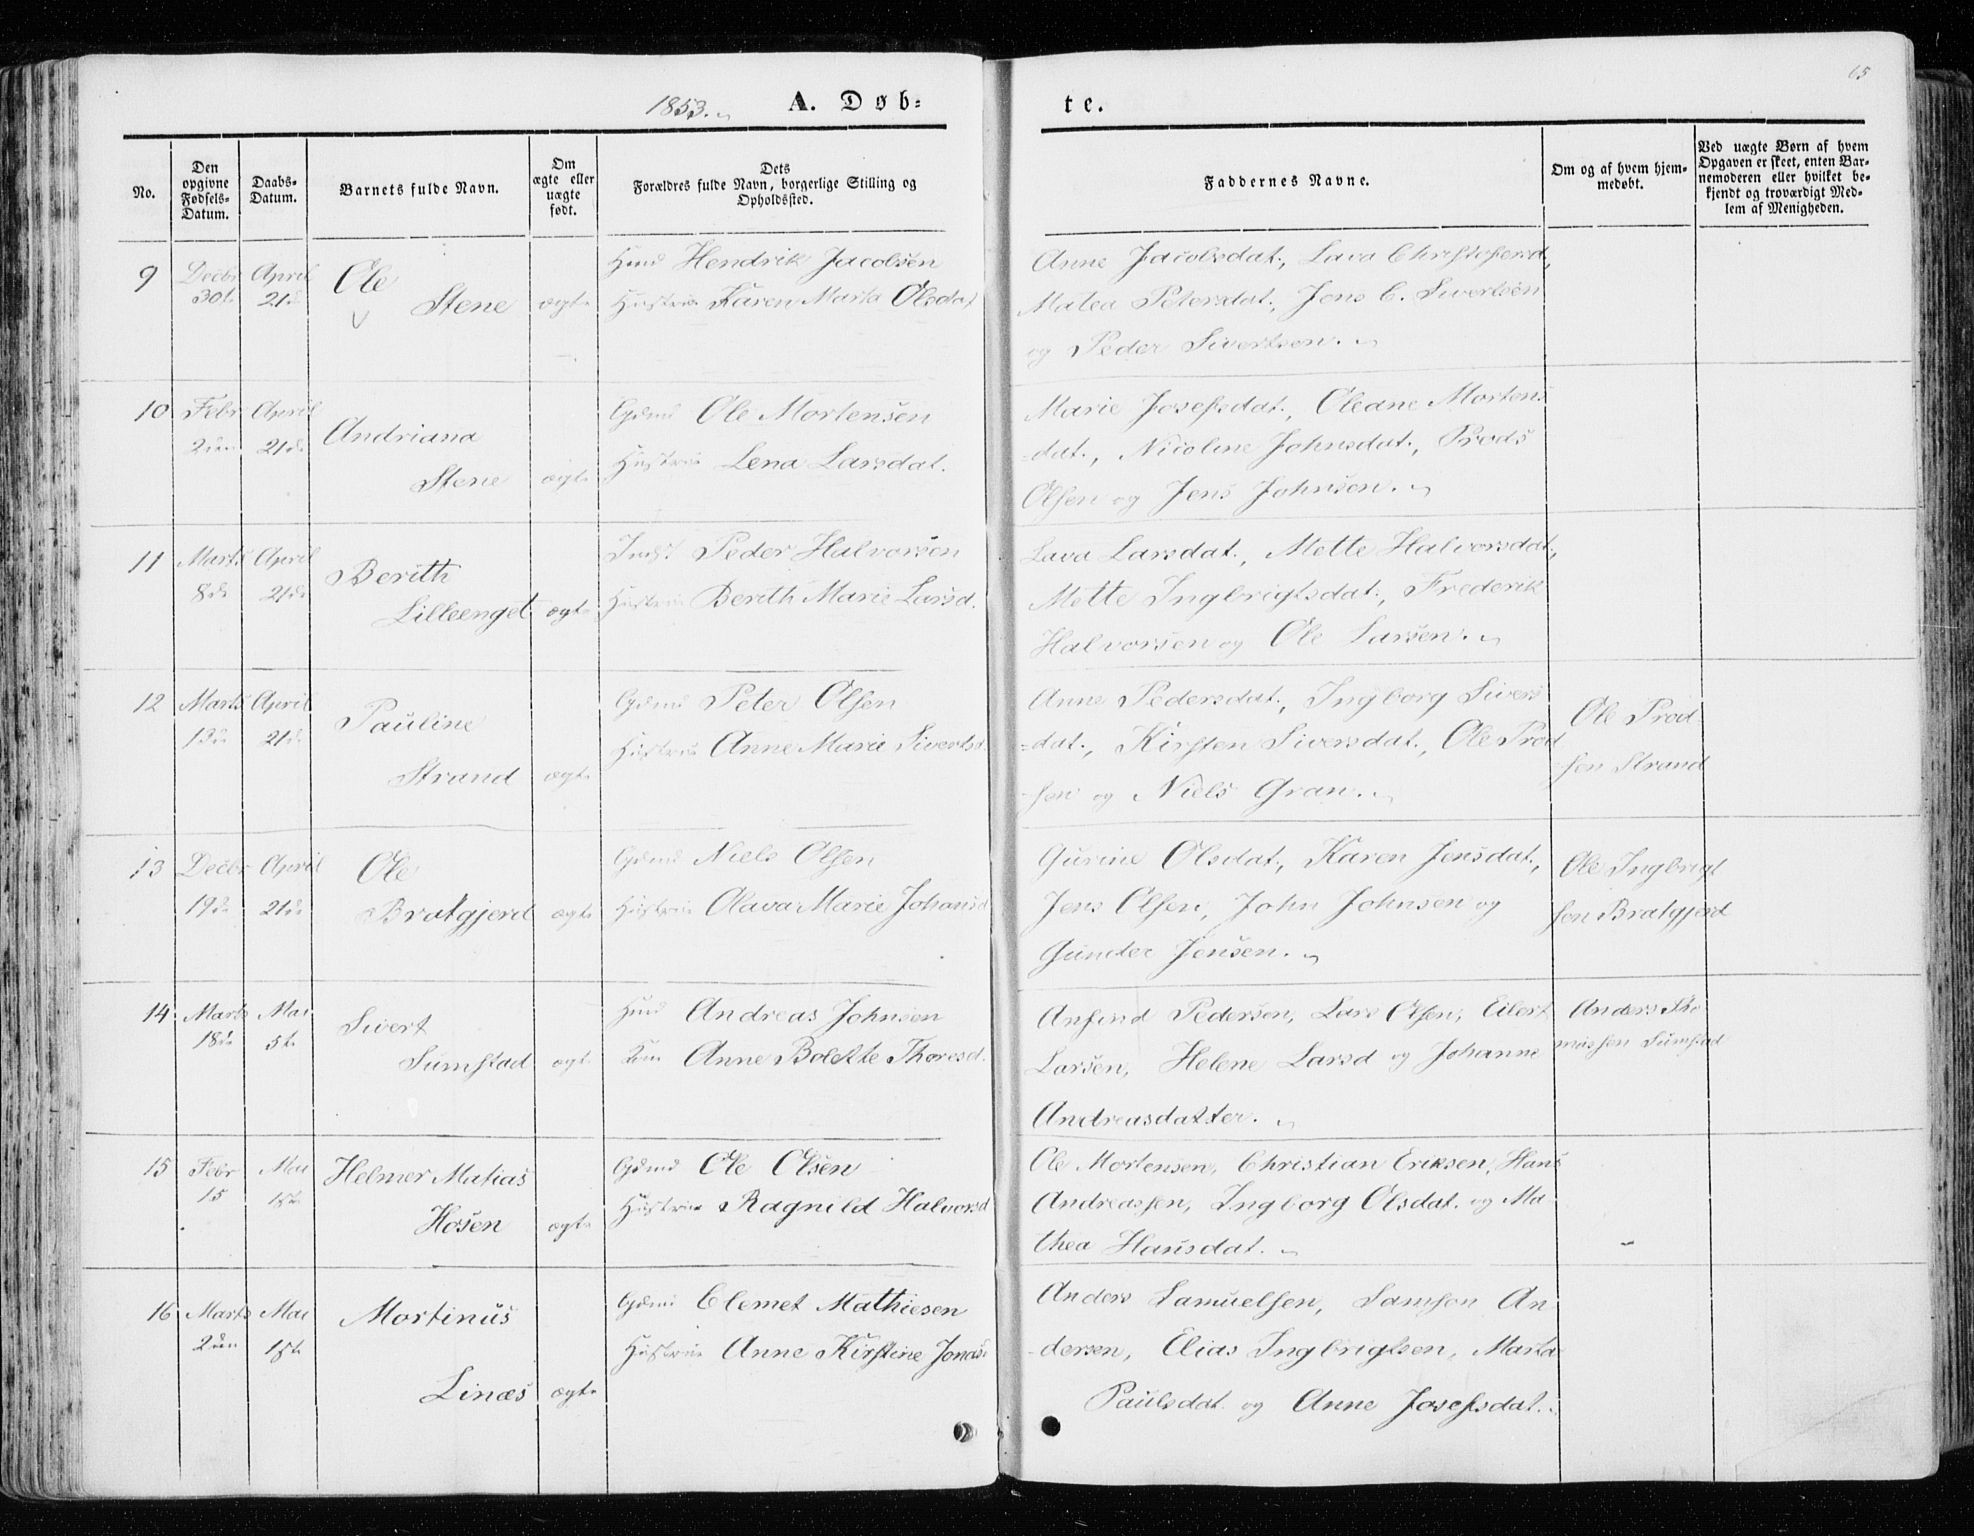 1853.
A. Døb-
te.
65
No.
Den opgivne Fødsels-Datum.
Daabs-Datum.
Barnets fulde Navn.
Om ægte eller uægte født.
Dets
Forældres fulde Navn, borgerlige Stilling og
Opholdssted.
Faddernes Navne.
Om og af hvem hjem-
medøbt.
Ved uægte Børn af hvem
Opgaven er skeet, enten Bar-
nemoderen eller hvilket be-
kjendt og troværdigt Med-
lem af Menigheden.
9 Decbr April Ole Huusd Hendrik Jacobsen
30t 21de Stene ægte Hustrue Karen Marta Olsdat
Anne Jacobsdat., Lava Christofersd,
Matea Petersdat., Jens C. Sivertsen
og Peder Sivertsen.
10 Febr April Andriana Gdmd Ole Mortensen
2den 21de Stene ægte Hustrue Lena Larsdat.
Marie Josefsdat., Oleane Mortens
-dat., Nicoline Johnsdat., Prods
Olsen og Jens Johnsen.
11 Marts April Berith Indst Peder Halvorsen
8de 21de Lilleenget ægte Hustrue Berith Marie Larsd.
Lava Larsdat., Mette Halvorsdat,
Mette Ingbrigtsdat., Frederik
Halvorsen og Ole Larsen.
12 Marts April Pauline Gdmd Peter Olsen
13de 21de Strand ægte Hustrue Anne Marie Sivertsd.
Anne Pedersdat., Ingborg Sivers
=dat., Kirsten Siversdat., Ole Prod
sen og Niels Gran.
Ole Prod
sen Strand
13 Decbr April Ole Gdmd Niels Olsen
19de 21de Bratgjerd ægte Hustrue Olava Marie Johansd
Gurine Olsdat., Karen Jensdat,
Jens Olsen, John Johnsen og
Gunder Jensen.
Ole Ingbrigt
sen Bratgjerd
14 Marts Mai Sivert Andreas Johnsen
18de 5te Sumstad ægte Anne Bolette Thoresd.
Anfind Pedersen, Lars Olsen, Eilert
Larsen, Helene Larsd og Johanne
Andreasdatter.
Anders Tho
massen Sumstad
15 Febr Mai Helmer Matias Gdmd Ole Olsen
15 1ste Hosen ægte Hustrue Ragnild Halvorsd
Ole Mortensen, Christian Eriksen, Hans
Andreassen, Ingborg Olsdat. og Ma-
thea Hansdat.
16 Marts Mai Mortinus Gdmd Clemet Mathiesen
2den 1ste Linæs ægte Hustrue Anne Kirstine Jonas
Anders Samuelsen, Samson An
-dersen, Elias Ingbrigtsen, Marta
Paulsdat og Anne Josefsdat.